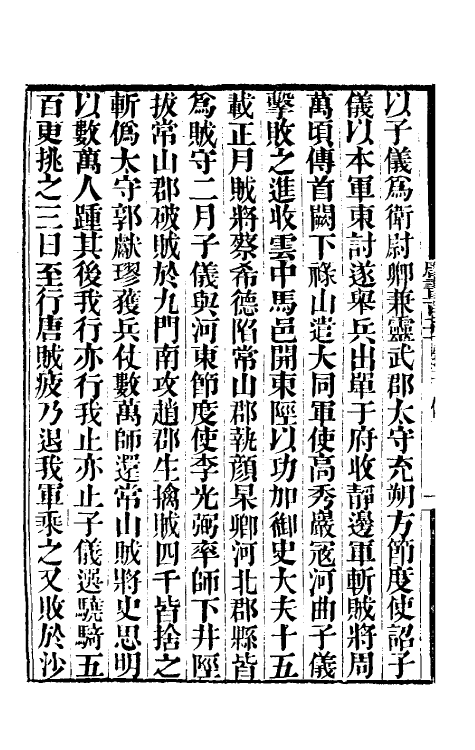 以子儀爲衛尉卿兼靈武郡太守充朔方節度使詔子
儀以本軍東討遂舉兵出單于府收靜邊軍斬賊將周
萬頃傳首闕下祿山遣大同軍使高秀巖寇河曲子儀
擊敗之進收雲中馬邑開東陘以功加御史大夫十五
載正月賊將蔡希德陷常山郡執顔杲卿河北郡縣皆
爲賊守二月子儀與河東節度使李光弼率師下井陘
拔常山郡破賊於九門南攻趙郡生擒賊四千皆捨之
斬僞太守郭獻璆獲兵仗數萬師還常山賊將史思明
以數萬人踵其後我行亦行我止亦止子儀選驍騎五
百更挑之三日至行唐賊疲乃退我軍乘之又敗於沙